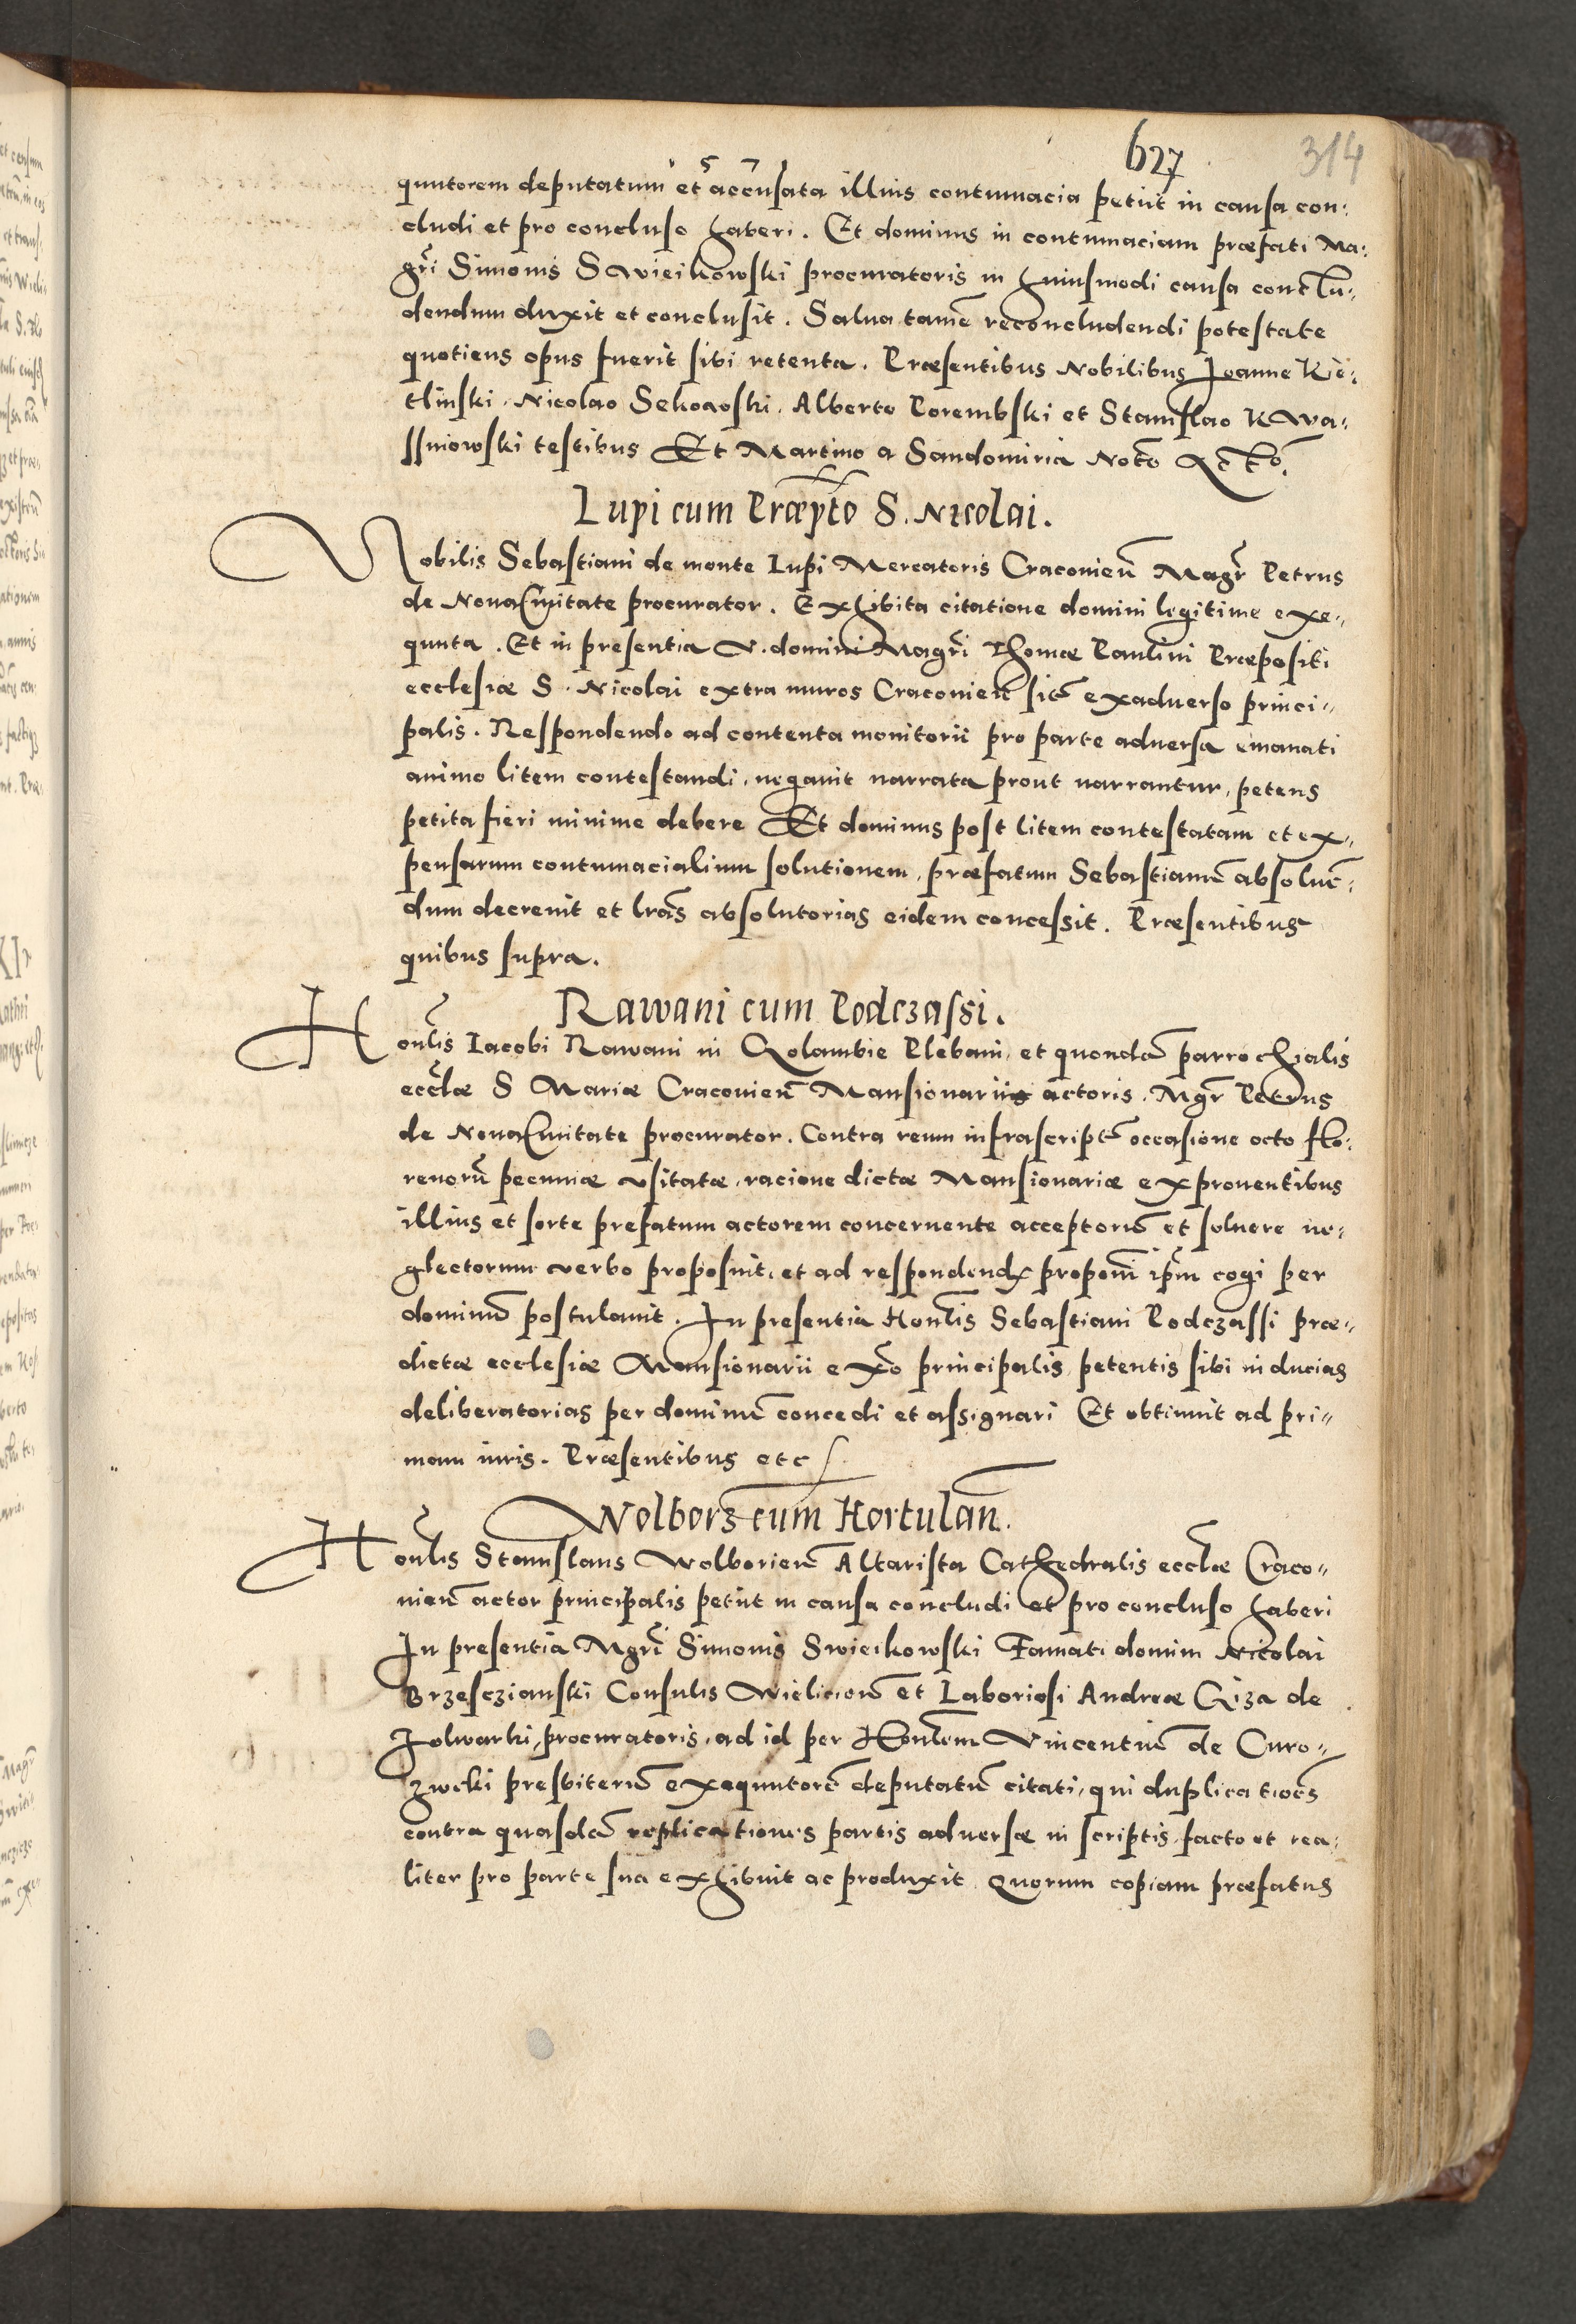 627
314
quutorem deputatum et accusata illius contumacia petiit in causa con:
cludi et pro concluso haberi. Et dominus in contumaciam præfati Ma:
gri Simonis Swieikowski procuratoris in huiusmodi causa conclu:
dendum duxit et conclusit. Salua tamē reconcludendi potestate
quotiens opus fuerit sibi retenta. Præsentibus Nobilibus Joanne Kie:
tlinski, Nicolao Sekowski, Alberto Porembski et Stanislao Kwa:
ssniowski testibus Et Martino a Sandomiria Noto
Lupi cum Præpto S. Nicolai.
Nobilis Sebastiani de monte Lupi Mercatoris Cracovieñ Magr Petrus
de Noua Ciuitate procurator. Exhibita citatione domini legitime exe:
quuta. Et in presentia V. domini Magri Thomæ Paulini Præpositi
ecclesiæ S. Nicolai extra muros Cracovieñ sitē exaduerso princi:
palis. Respondendo ad contenta monitorii pro parte aduersa emanati
animo litem contestandi, negauit narrata prout narrantur, petens
petita fieri minime debere Et dominus post litem contestatam et ex:
pensarum contumacialium solutionem, præfatum Sebastianū absoluē:
dum decreuit et lras absolutorias eidem concessit. Præsentibus
quibus supra.
Rawani cum Podczassi.
Honlis Iacobi Rawani in Qolambie Plebani, et quondā parrochialis
ecclæ S Mariæ Cracovieñ Mansionarii actoris. Mgr Petrus
de Noua Ciuitate procurator. Contra reum infrascriptū occasione octo flo:
renorū pecuniæ vsitatæ, racione dictæ Mansionariæ ex prouentibus
illius et sorte prefatum actorem concernente acceptorū et soluere ne:
glectorum verbo proposuit, et ad respondend propoñi ipm cogi per
dominū postulauit. In presentia Honlis Sebastiani Podczassi præ:
dictæ ecclesiæ Mansionarii exo principalis petentis sibi inducias
deliberatorias per dominū concedi et assignari Et obtinuit ad pri:
mam iuris. Præsentibus etc
Wolborz cum Hortulañ.
Honlis Stanislaus Wolborieñ Altarista Cathedralis ecclæ Craco:
uieñ actor principalis petiit in causa concludi et pro concluso haberi
In presentia Mgri Simonis Swieikowski Famati domini Nicolai
Brzesczianski Consulis Wielicieñ et Laboriosi Andreæ Giza de
Folwarki, procuratoris, ad id per Honlem Vincentiū de Curo:
zweki presbiterū exequutorē deputatū citati, qui duplicatioēs
contra quasdā replicationes partis aduersæ in scriptis facto et rea:
liter pro parte sua exhibuit ac produxit Quorum copiam præfatus